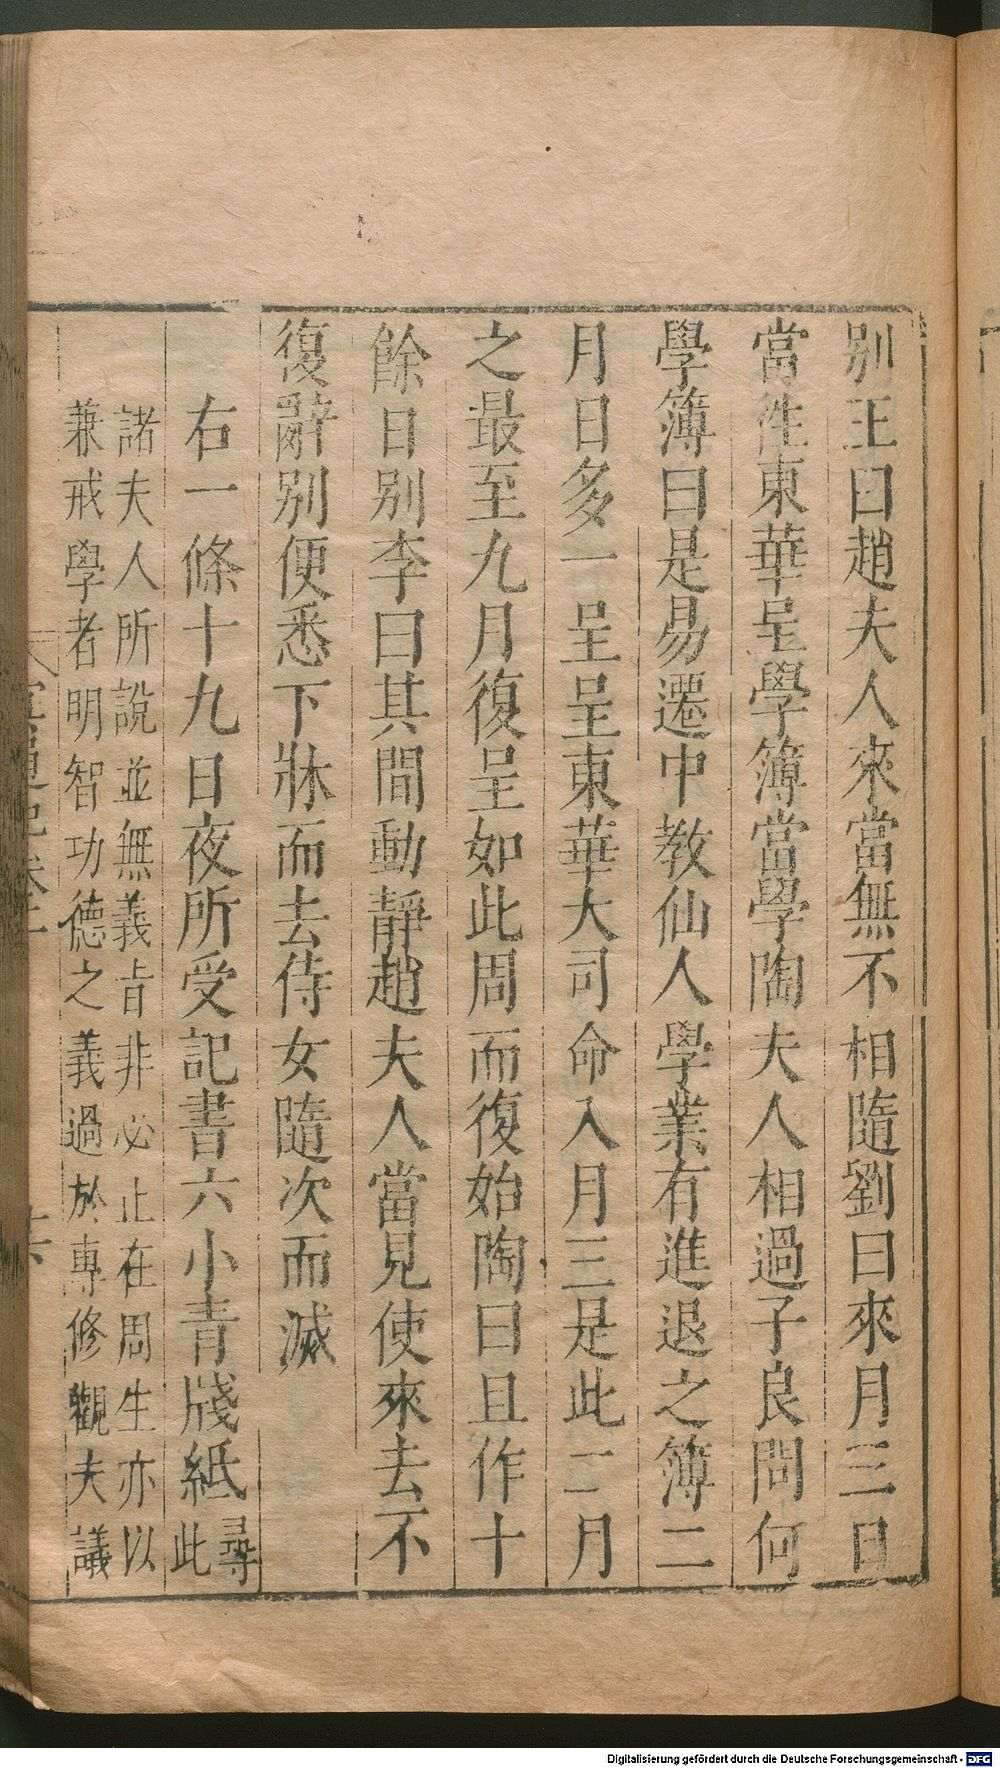 别王曰趙夫人來當無不相隨劉曰來月三日
當性東華呈學簿當學陶夫人相過子良問何
學簿曰是易遷中教仙人學業有進退之簿二
月日多一呈呈東華大司命入月三是此二月
之最至九月復呈如此周而復始陶曰且作十
餘日别李曰其間動靜趙夫人當見使來去不
復辭别便悉下牀而去侍女隨次而滅
右一條十九日夜所受記書六小青牋紙尋此
諸夫人所說並無義㫖非必止在周生亦以
兼戒學者明智功德之義過於專修觀夫議
冥通記卷
Digitalisierung gefördert durch die Deutsche Forschungsgemeinschaft - DFG